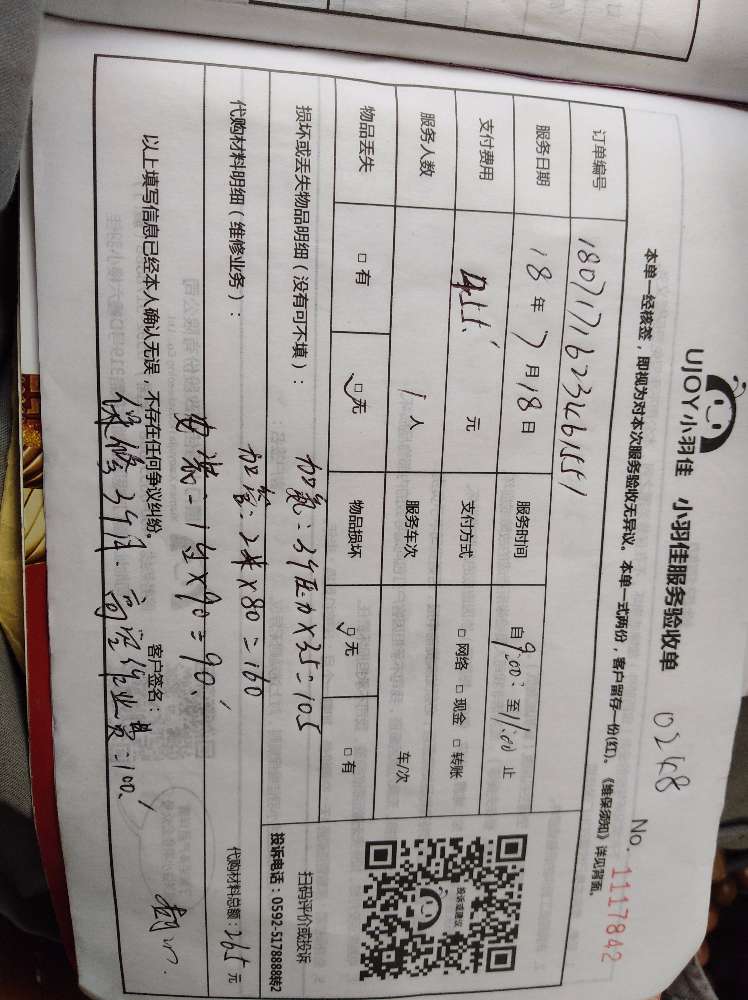 UJOY小羽佳 小羽佳服务验收单 0248
No. 1117842
本单一经核签，即视为对本次服务验收无异议。本单一式两份，客户留存一份(红)。《维保须知》详见背面。
订单编号 1807171623461551
服务日期 18年7月18日 服务时间 自9:00至11:00止
支付费用 455 元 支付方式 □网络 □现金 □转账
服务人数 1人 服务车次 车/次
物品丢失 □有 □无 物品损坏 □无 □有
损坏或丢失物品明细（没有可不填）：
加氟：3个压力×35=105
扫码评价或投诉
投诉电话：0592-5178888转2
投诉或建议
代购材料明细（维修业务）：
加管：2米×80=160
安装：1台×90=90
代购材料总额：265元
以上填写信息已经本人确认无误，不存在任何争议纠纷。 客户签名：
保修3个月. 高空作业费：100.